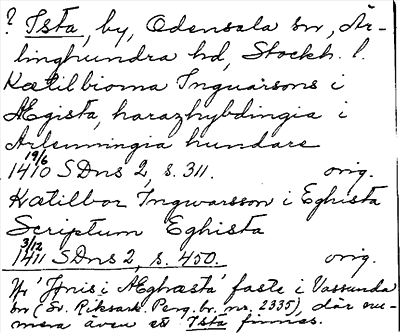 ? Ista, by, Odensala sn, Är-
linghundra hd, Stockh. l.
Kætilbiorna Inguarsons i
Ægista, harazhøfdingia i
Arlenningia hundare
19/6
1410 SDns 2, s. 311. orig.
Kætilbor Ingwarsson i Eghista
Scriptum Eghista
3/12
1411 SDns 2, s. 450. orig.
Jfr 'Jønis i Æghæsta' faste i Vassunda
sn (Sv. Riksark. Perg. br. nr. 2335), där nu-
mera även ett Ista finnes.